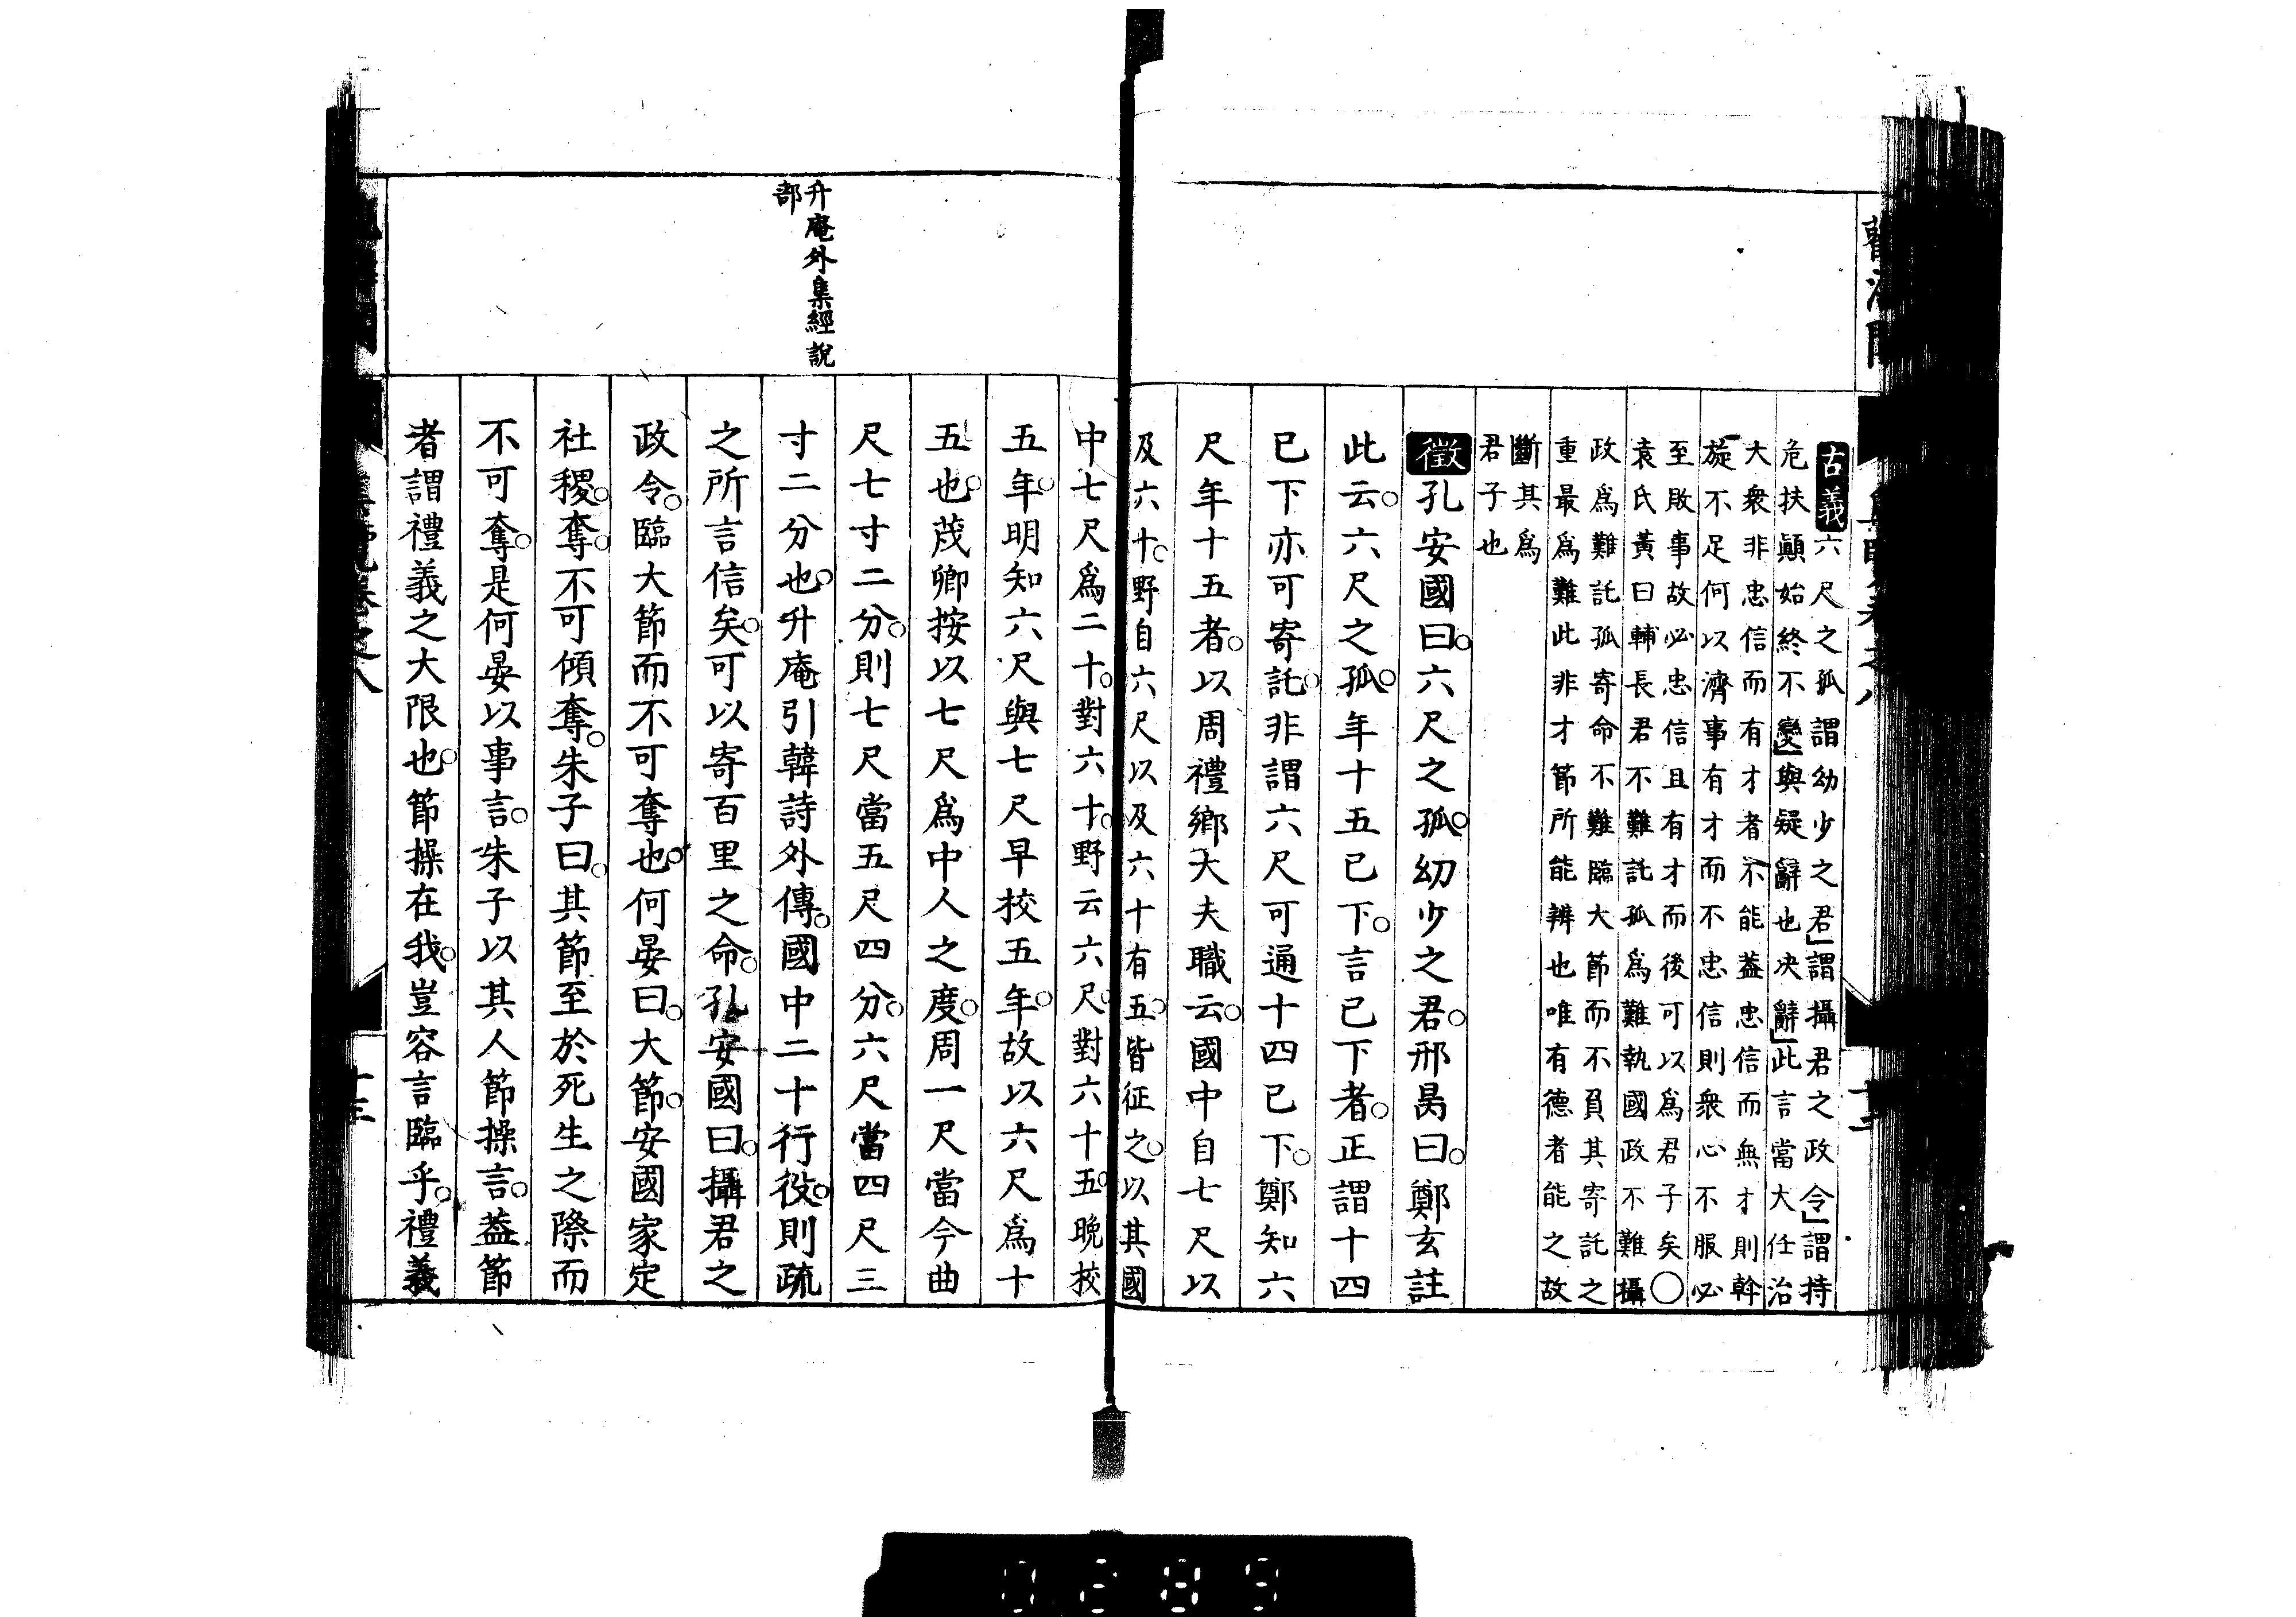 古義六尺之孤謂幼少之君謂攝君之政令謂持
危扶顚始終不變與疑辭也决辭此言當大任治
大衆非忠信而有才者不能葢忠信而無才則斡
旋不足何以濟事有才而不忠信則衆心不服必
至敗事故必忠信且有才而後可以爲君子矣○
袁氏黃曰輔長君不難託孤爲難執國政不難攝
政爲難託孤寄命不難臨大節而不負其寄託之
重最爲難此非才節所能辨也唯有德者能之故
斷其爲
君子也
徵孔安國曰六尺之孤幼少之君邢昺曰鄭玄註
此云六尺之孤年十五已下言已下者正謂十四
已下亦可寄託非謂六尺可通十四已下鄭知六
尺年十五者以周禮鄉大夫職云國中自七尺以
及六十野自六尺以及六十有五皆征之以其國
升庵外集經說
部
中七尺爲二十對六十野云六尺對六十五晚校
五年明知六尺與七尺早校五年故以六尺爲十
五也茂卿按以七尺爲中人之度周一尺當今曲
尺七寸二分則七尺當五尺四分六尺當四尺三
寸二分也升庵引韓詩外傳國中二十行役則疏
之所言信矣可以寄百里之命孔安國曰攝君之
政令臨大節而不可奪也何晏曰大節安國家定
社稷奪不可傾奪朱子曰其節至於死生之際而
不可奪是何晏以事言朱子以其人節操言葢節
者謂禮義之大限也節操在我豈容言臨乎禮義